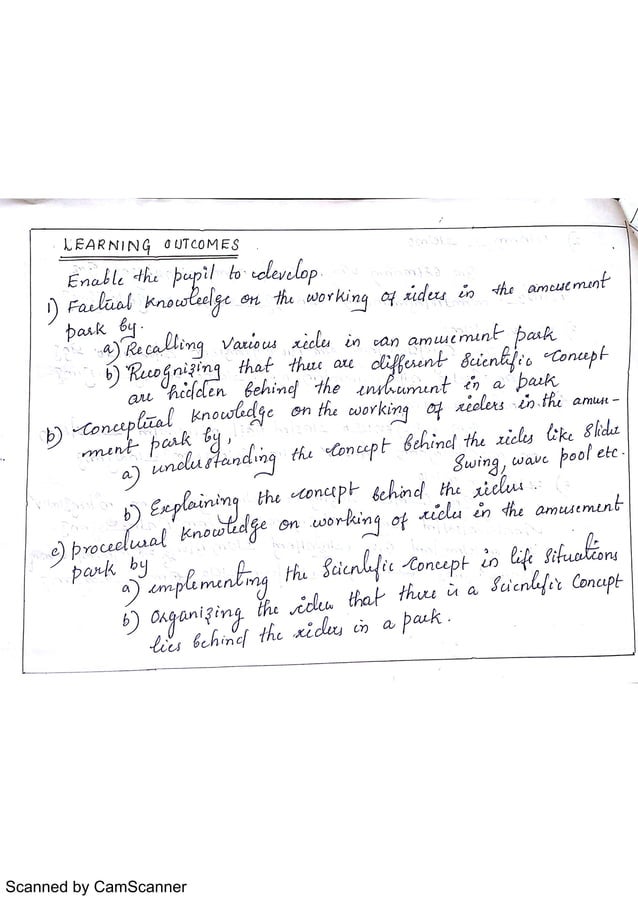 LEARNING OUTCOMES
Enable the pupil to develop.
1) Factual knowledge on the working of riders in the amusement
park by.
a) Recalling various rides in an amusement park
b) Recognizing that there are different Scientific Concept
are hidden behind the instrument in a park
b) Conceptual knowledge on the working of riders in the amun-
ment park by,
a) understanding the concept behind the rides like Slide
Swing, wave pool etc.
b) Explaining the concept behind the rides.
c) procedural knowledge on working of rides in the amusement
park by
a) implementing the Scientific Concept in life Situations
b) Organizing the idea that there is a Scientific Concept
lies behind the riders in a park.
Scanned by CamScanner